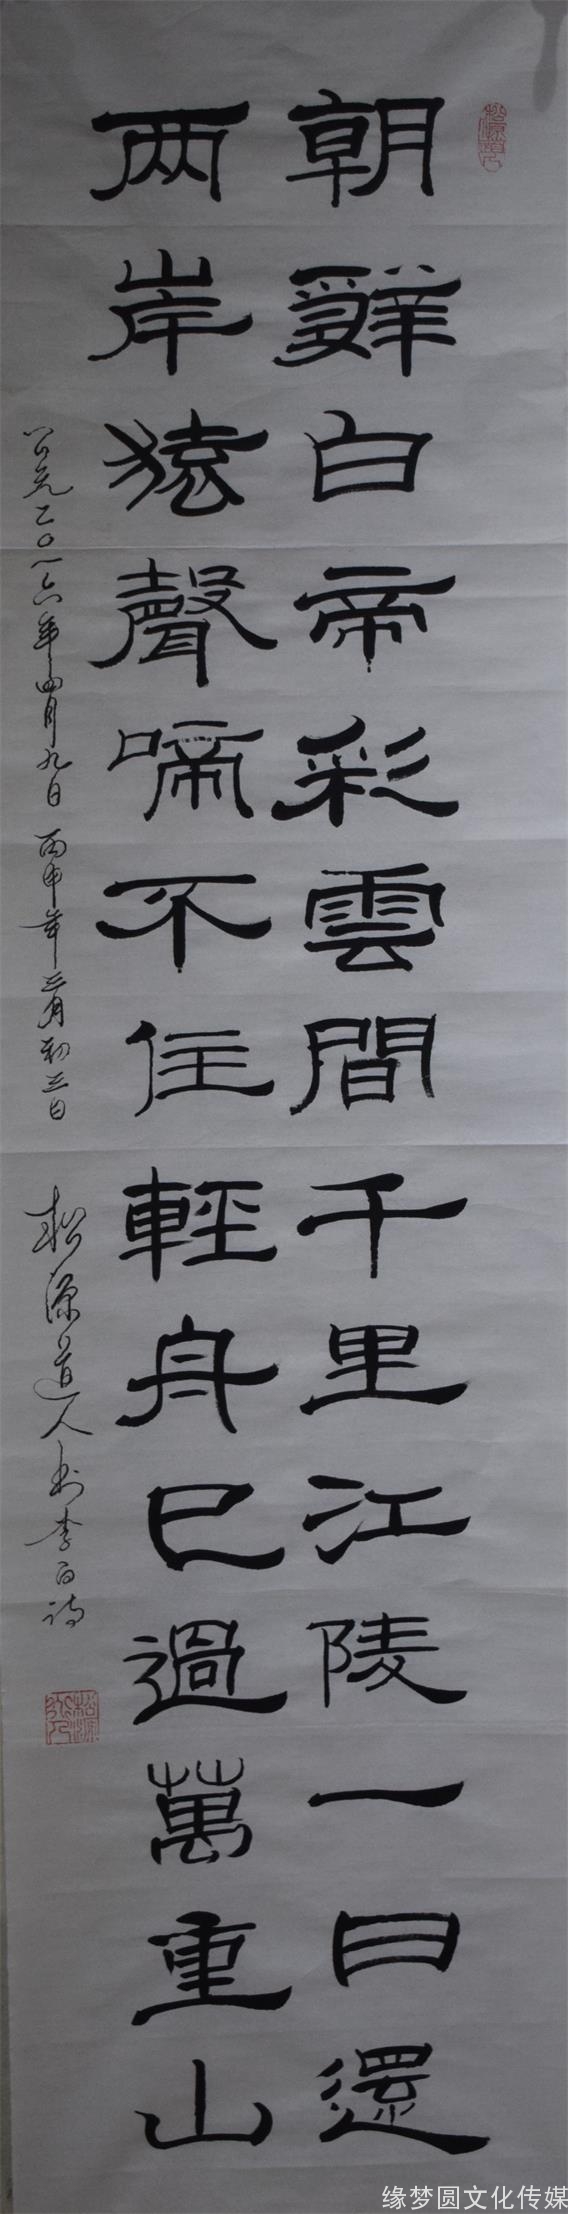 朝辭白帝彩雲間千里江陵一日還
两岸猿聲啼不住輕舟已過萬重山
公元二〇一六年四月九日 丙申年三月初三日 松源道人书李白诗
缘梦圆文化传媒